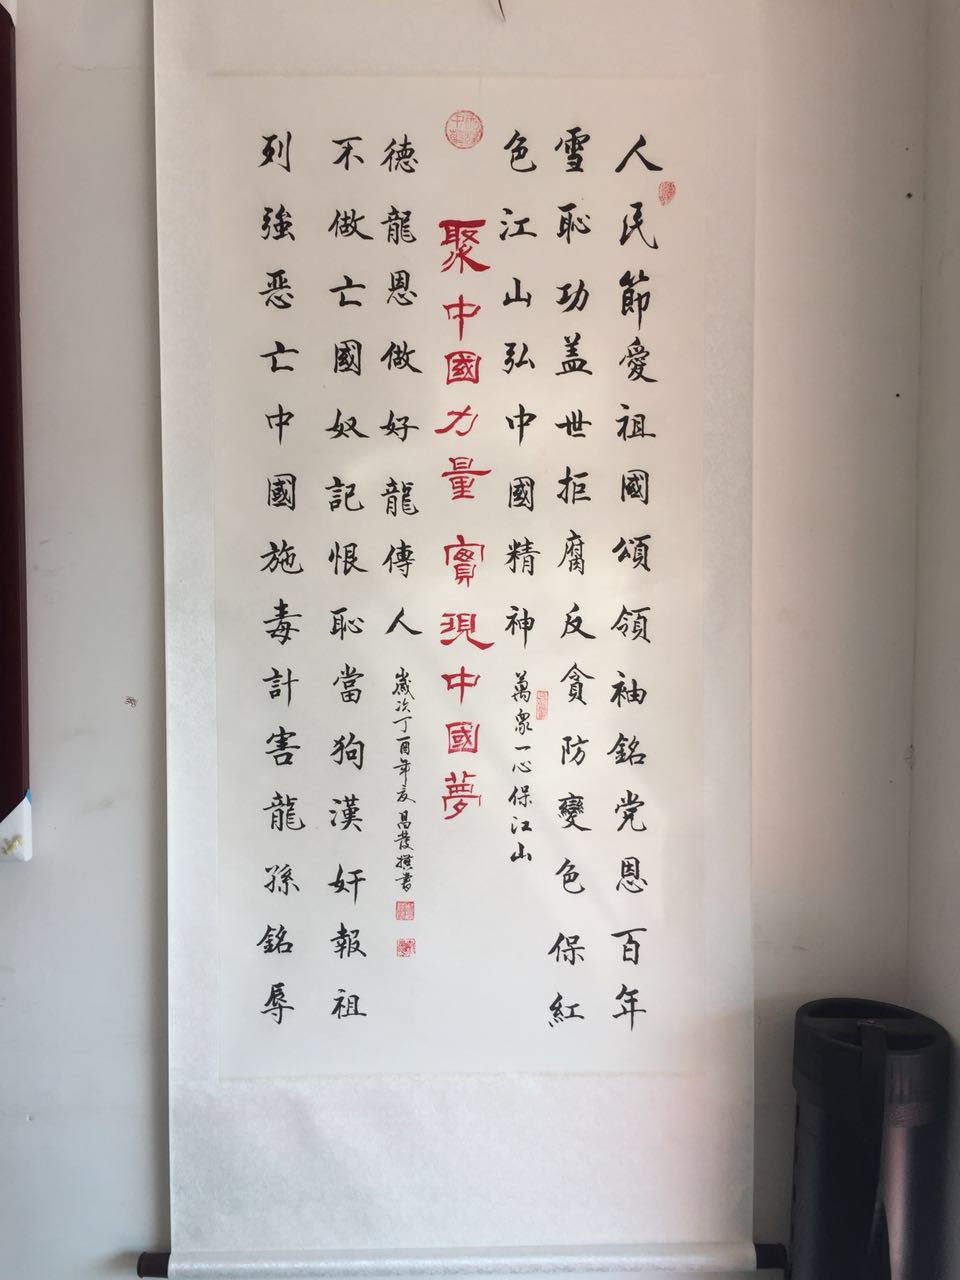 人民節愛祖國頌領袖銘党恩百年
雪恥功盖世拒腐反貪防變色保紅
色江山弘中國精神
萬衆一心保江山
聚中國力量 實現中國夢
列強恶亡中國施毒計害龍孫銘辱
不做亡國奴記恨恥當狗漢奸報祖
德龍恩做好龍傳人
歲次丁酉年夏 昌發撰書